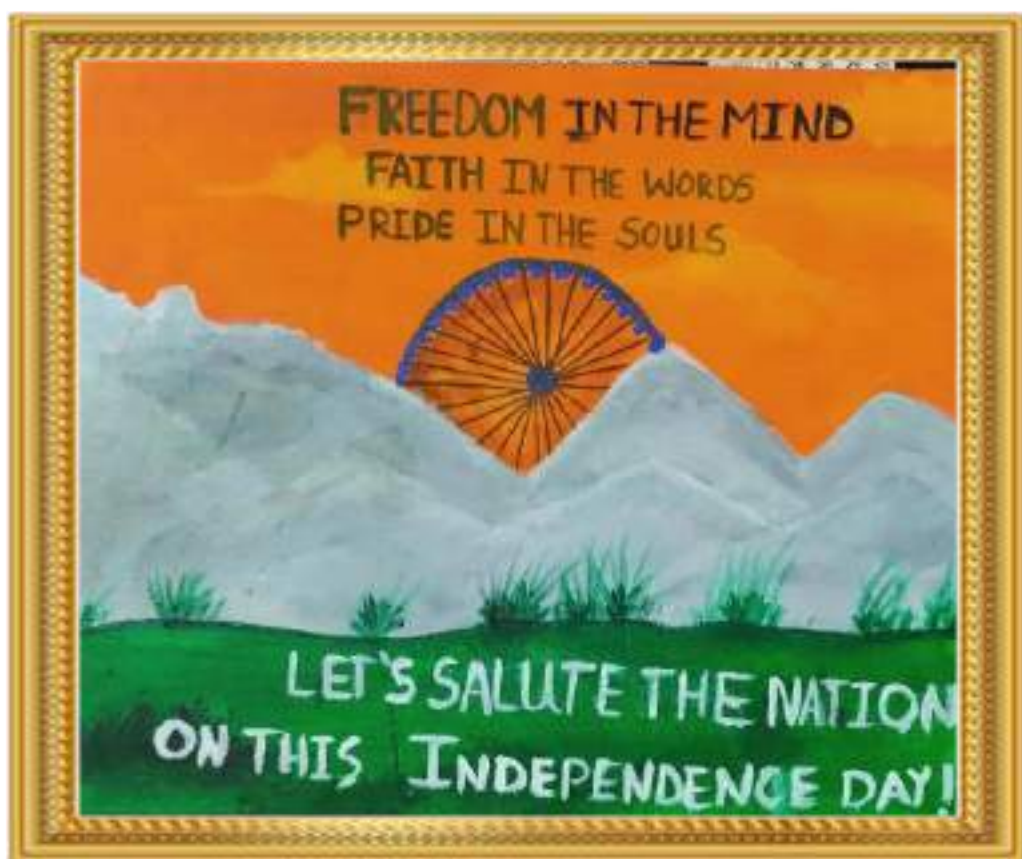 FREEDOM IN THE MIND
FAITH IN THE WORDS
PRIDE IN THE SOULS
LET'S SALUTE THE NATION
ON THIS INDEPENDENCE DAY!